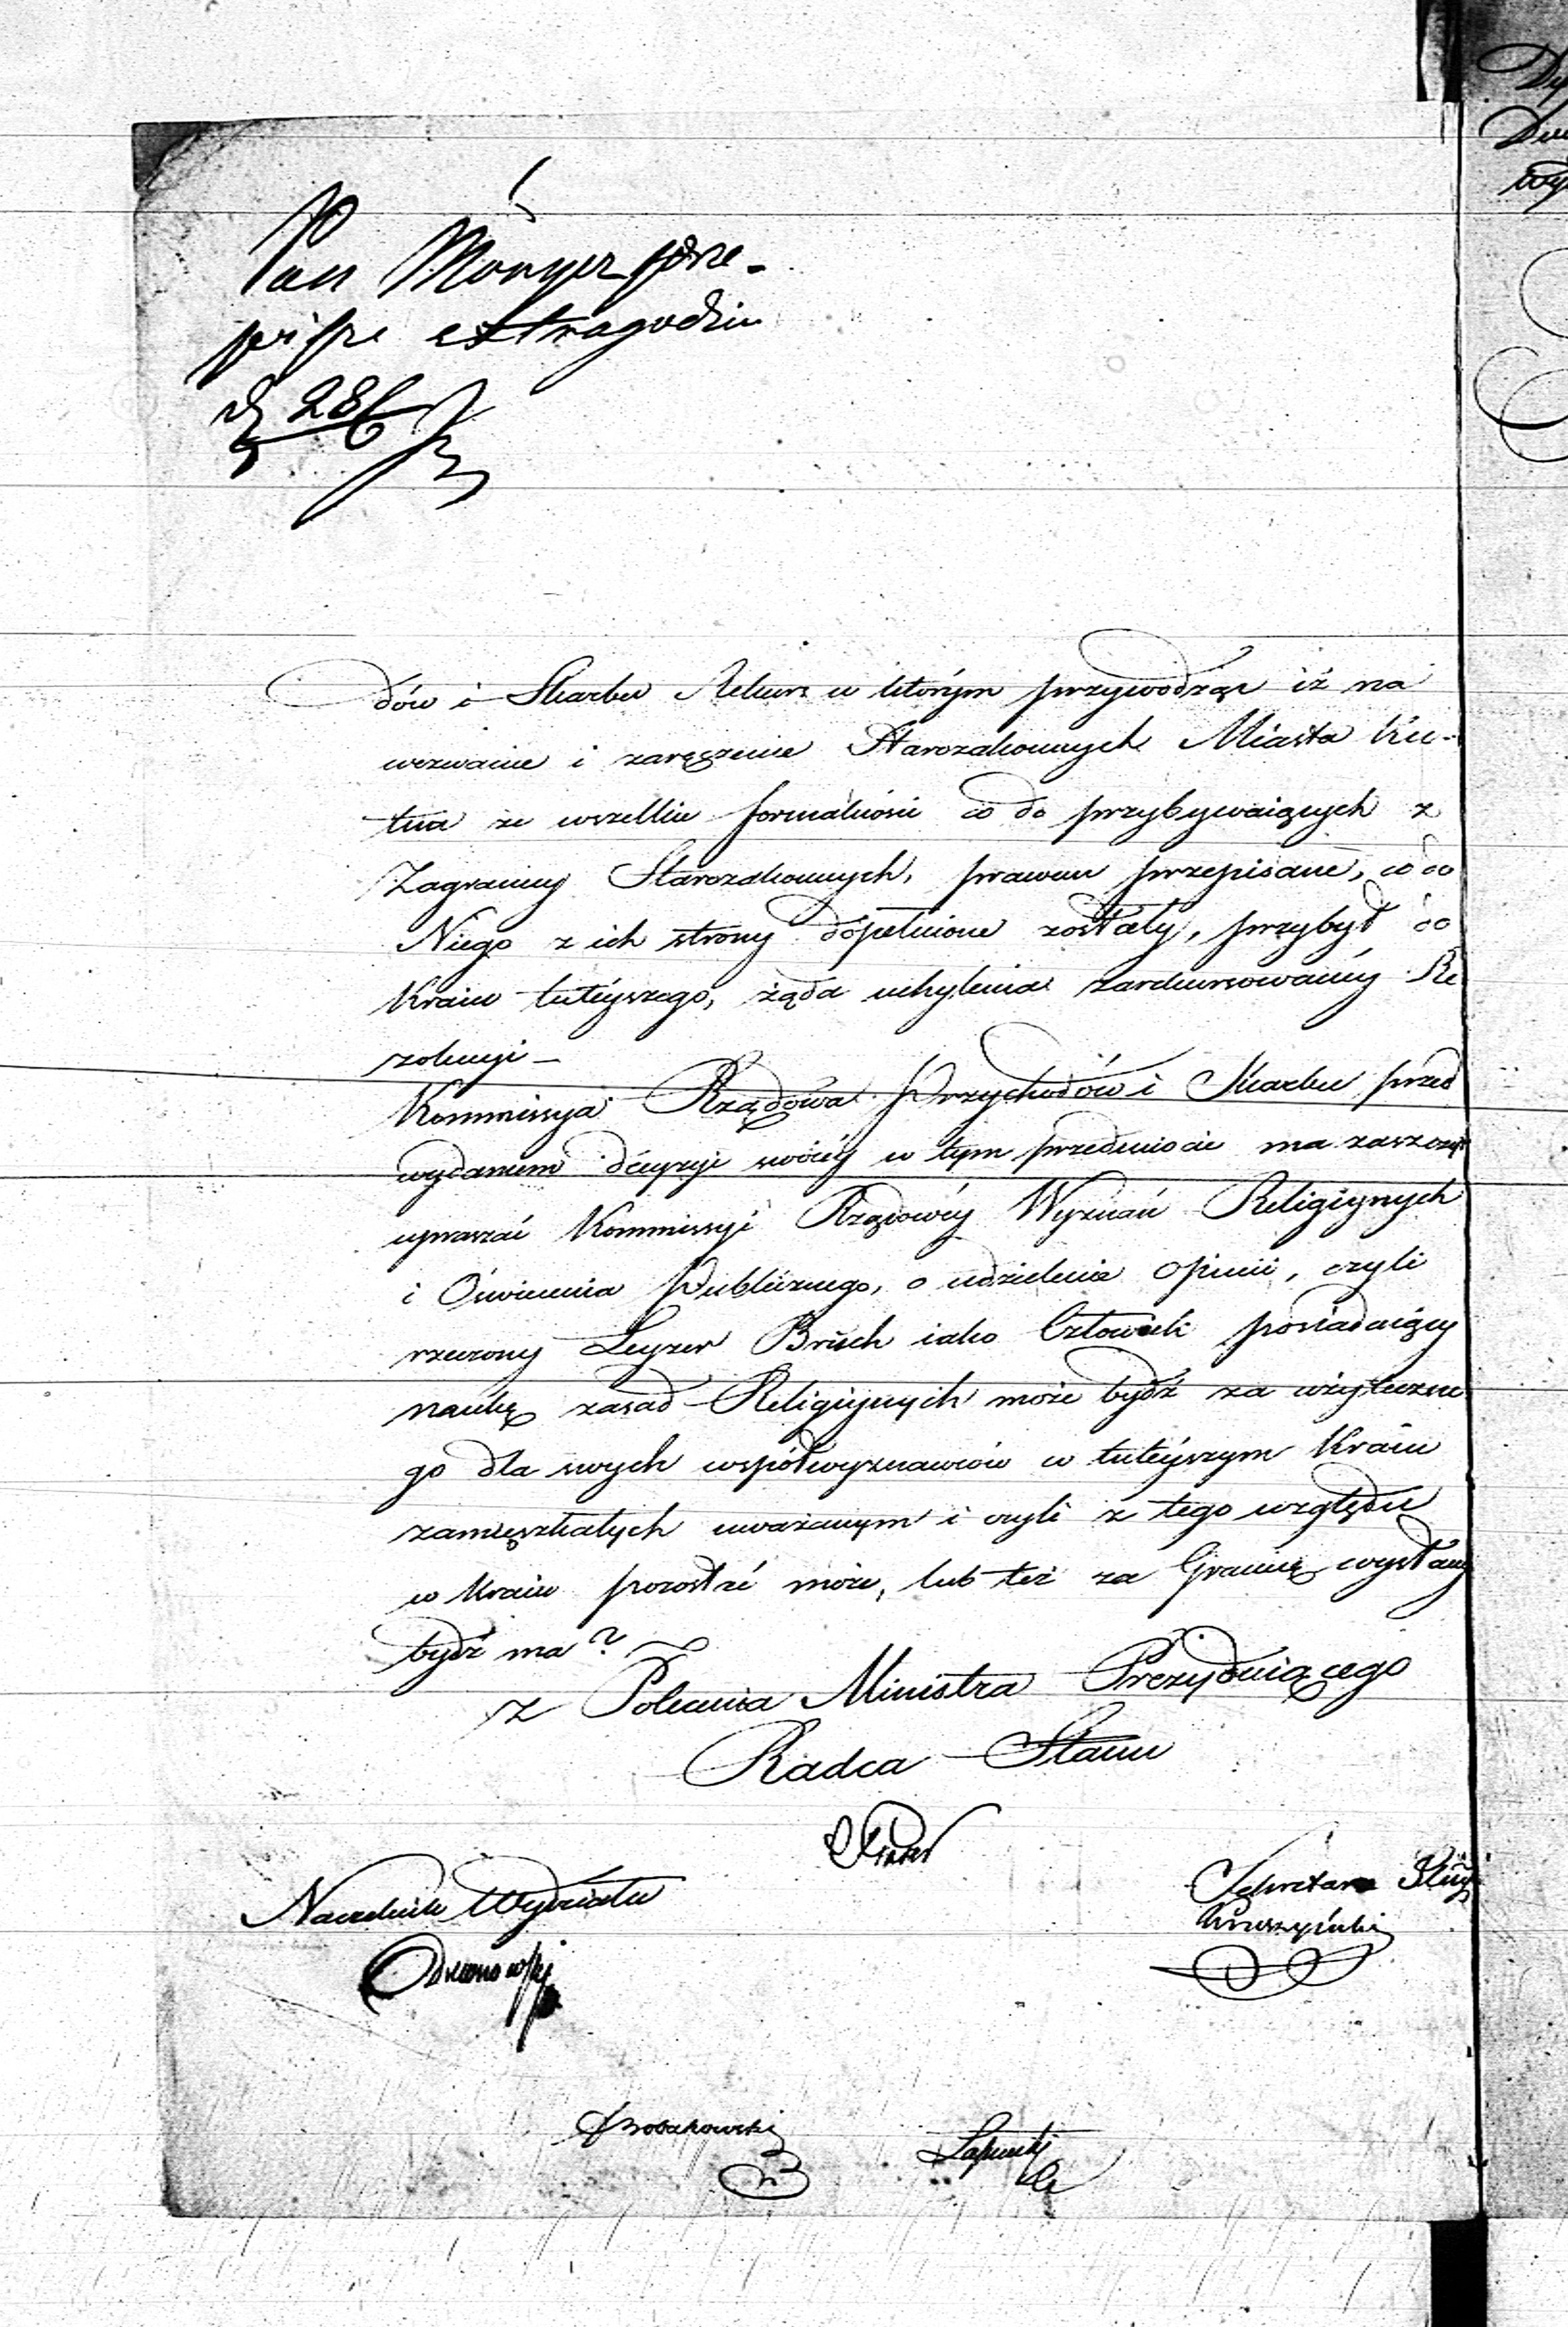 Pan Monyer prze-
pisze extragodzin
d 28/6
dów i Skarbu Rekurs w którym przywodząc iż na
wezwanie i zaręczenie Starozakonnych Miasta Ku-
tna że wszelkie formalności co do przybywaiących z
Zagranicy Starozakonnych, prawem przepisane, co do
Niego z ich strony dopełnione zostały, przybył do
Kraiu tuteyszego, żąda uchylenia zarekursowanéy Re
zolucyi –
Kommissya Rządowa Przychodów i Skarbu przed
wydaniem decyzyi swoiéy w tym przedmiocie ma zaszczyt
upraszać Kommissyi Rządowéy Wyznań Religiynych
i Oświecenia Publicznego, o udzielenie opinii, czyli
rzeczony Leyzer Brüch iako Człowiek posiadaiący
naukę zasad Religiynych może bydź za użyteczne
go dla swych współwyznawców w tuteyszym Kraiu
zamięszkałych uważanym i czyli z tego względu
w Kraiu pozostać może, lub też za Granicę wysłany
bydź ma?
Z Polecenia Ministra Prezyduiącego
Radca Stanu
Naczelnik Wydziału
Sekretarz